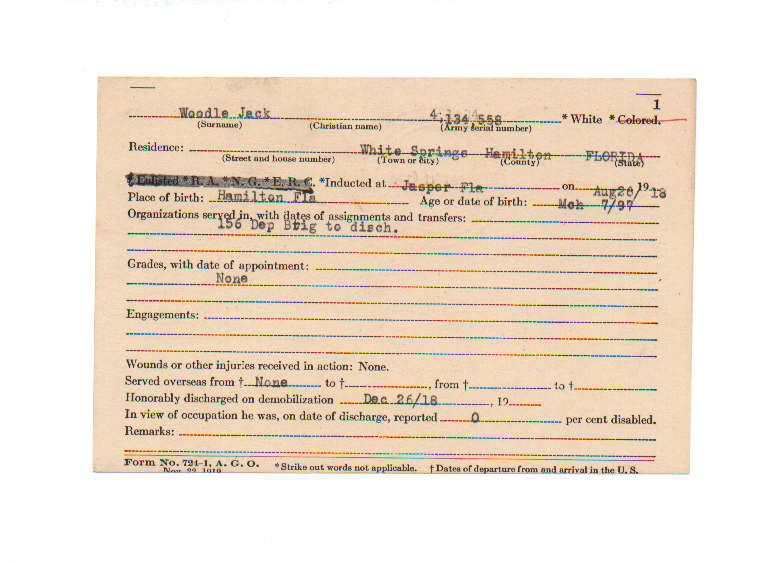 1
Woodle Jack 4,134,558 * White * Colored.
(Surname) (Christian name) (Army serial number)
Residence: White Springs Hamilton FLORIDA
(Street and house number) (Town or city) (County) (State)
† Enlisted * R. A. * N. G. * E. R. C. *Inducted at Jasper Fla on Aug26/ 19 18
Place of birth: Hamilton Fla Age or date of birth: Mch 7/97
Organizations served in, with dates of assignments and transfers:
156 Dep Brig to disch.
Grades, with date of appointment:
None
Engagements:
Wounds or other injuries received in action: None.
Served overseas from † None to †, from † to †
Honorably discharged on demobilization Dec 26/18, 19
In view of occupation he was, on date of discharge, reported 0 per cent disabled.
Remarks:
Form No. 724-1, A. G. O. *Strike out words not applicable. † Dates of departure from and arrival in the U. S.
Nov. 22, 1919